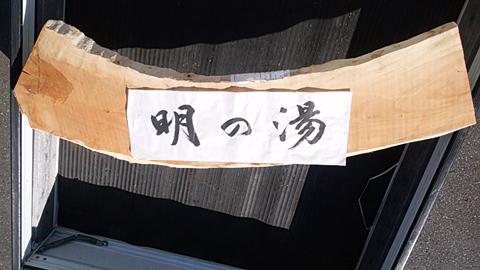 明の湯